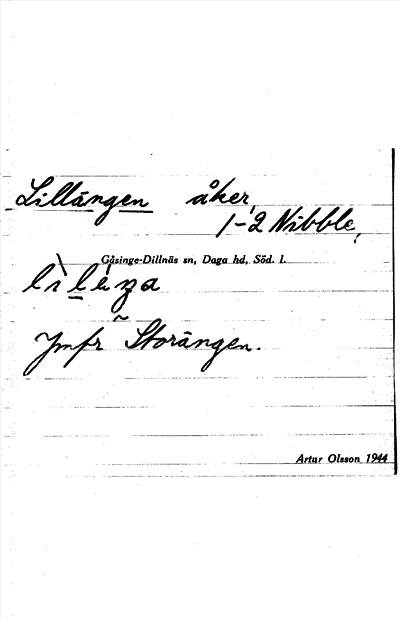 Lillängen åker,
1-2 Nibble,
Gåsinge-Dillnäs sn, Daga hd, Söd. l.
Jmfr Storängen.
Artur Olsson 1944